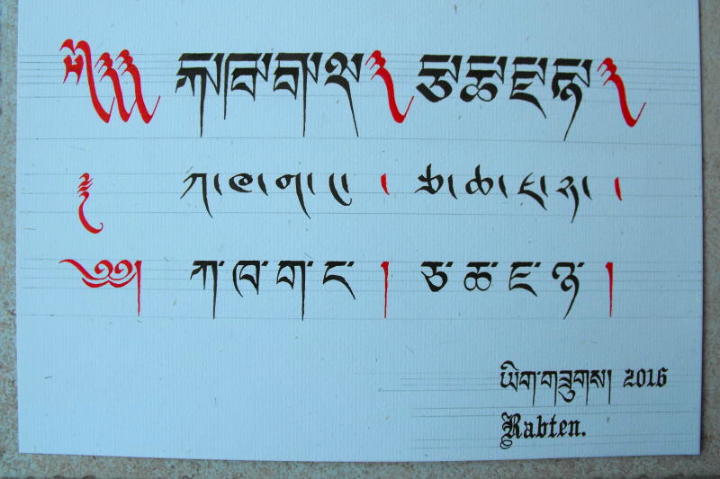 ༄༅༅། ཀ་ཁ་ག་ང་། ཅ་ཆ་ཇ་ཉ་།
༄། ཀ་ཁ་ག་ང་། ཅ་ཆ་ཇ་ཉ་།
༄༅། ཀ་ཁ་ག་ང་། ཅ་ཆ་ཇ་ཉ་།
ཡིག་གཟུགས། 2016
Rabten.